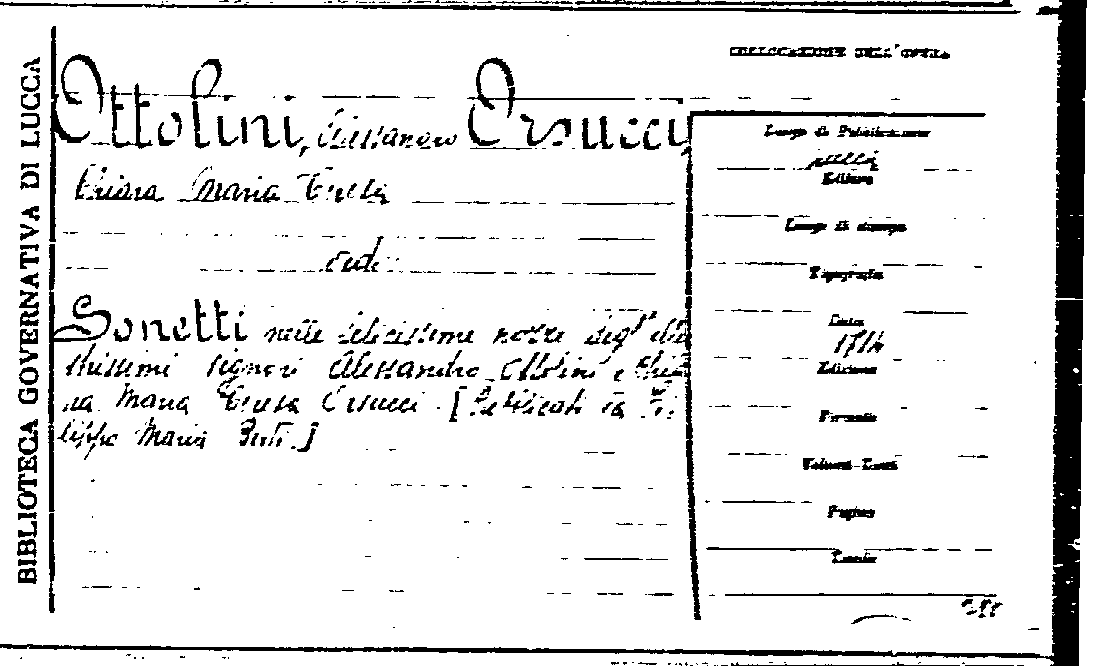 BIBLIOTECA GOVERNATIVA DI LUCCA
COLLOCAZIONE DELL'OPERA
Ottolini, Alessandro Orsucci,
Chiara Maria Teresa
Sonetti nelle felicissime nozze degl'Illu
strissimi signori Alessandro Ottolini e Chia
ra Maria Teresa Orsucci. [Pubblicati da Fi
lippo Maria
Luogo di Pubblicazione
Lucca
Editore
Luogo di stampa
Tipografia
Data
Edizione
Formato
Volumi-Tomi
Pagine